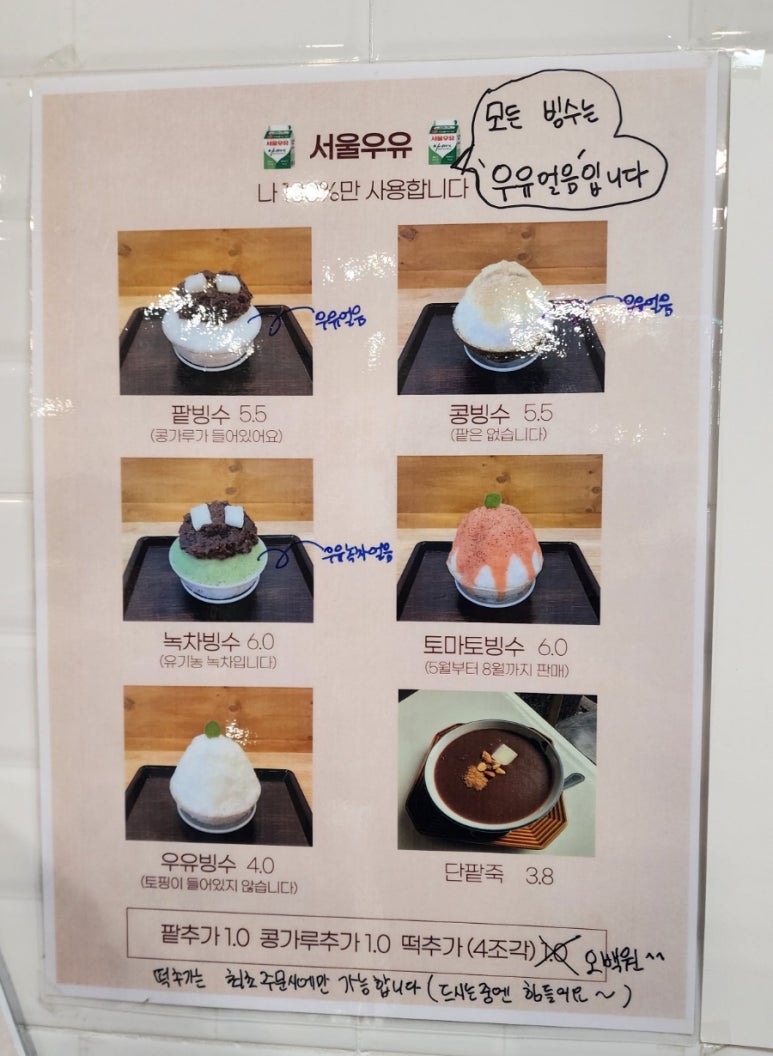 서울우유
모든 빙수는
'우유얼음'입니다
나 100%만 사용합니다
우유얼음
우유얼음
팥빙수 5.5
(콩가루가 들어있어요)
콩빙수 5.5
(팥은 없습니다)
우유녹차얼음
녹차빙수 6.0
(유기농 녹차입니다)
토마토빙수 6.0
(5월부터 8월까지 판매)
우유빙수 4.0
(토핑이 들어있지 않습니다)
단팥죽 3.8
팥추가 1.0 콩가루추가 1.0 떡추가 (4조각) 1.0 오백원^^
떡추가는 최초 주문시에만 가능합니다 (드시는중엔 힘들어요~)